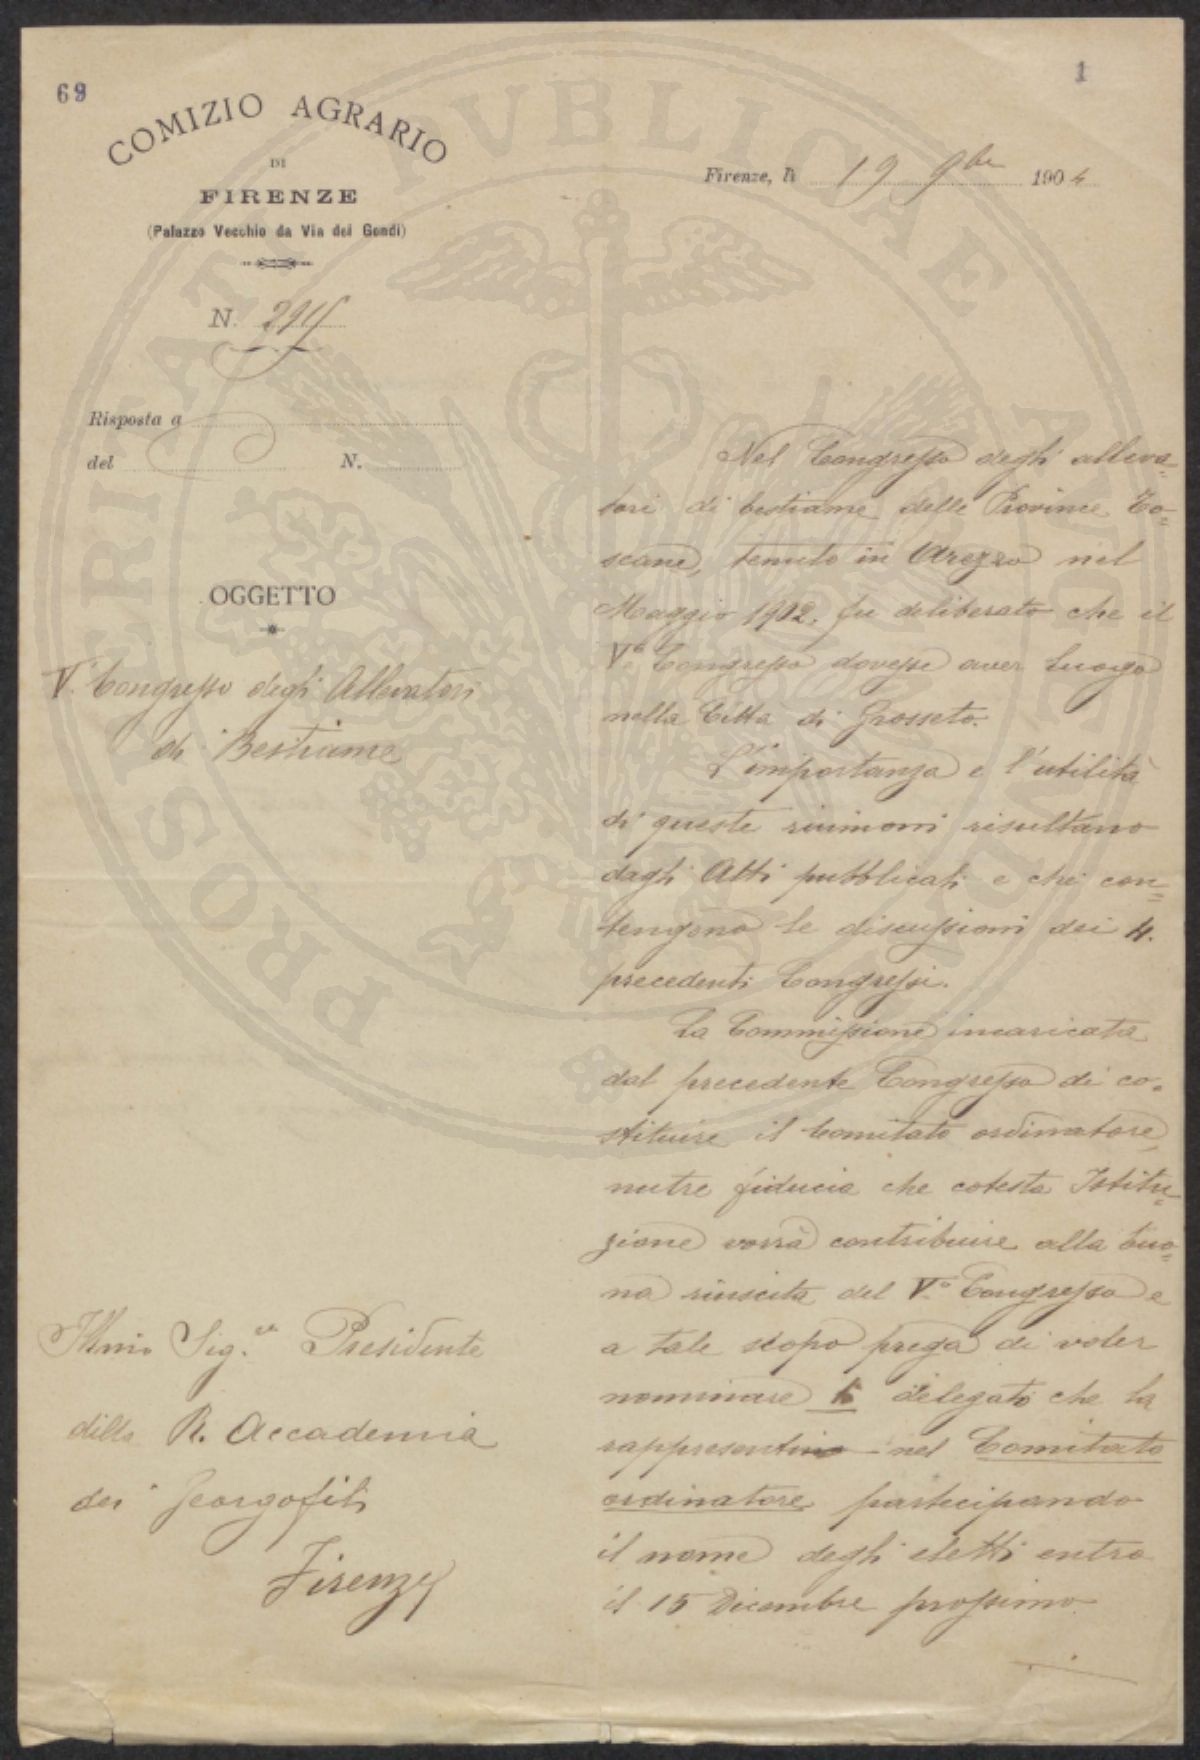 69
1
COMIZIO AGRARIO
DI
FIRENZE
(Palazzo Vecchio da Via dei Gondi)
Firenze, li 19 9bre 1904
N.
Risposta a
del N.
OGGETTO
V.° Congresso degli Allevatori
di Bestiame
Nel Congresso degli alleva=
tori di bestiame delle Provincie To=
scane, tenuto in Arezzo nel
Maggio 1902. fu deliberato che il
V.° Congresso dovesse aver luogo
nella Città di Grosseto.
L'importanza e l'utilità
di queste riunioni risultano
dagli Atti pubblicati e che con=
tengono le discussioni dei 4.
precedenti Congressi.
La Commissione incaricata
dal precedente Congresso di co=
stituire il Comitato ordinatore,
nutre fiducia che cotesta Istitu=
zione vorrà contribuire alla buo=
na riuscita del V.° Congresso e
a tale scopo prega di voler
nominare delegati che la
rappresentino nel Comitato
ordinatore partecipando
il nome degli eletti entro
il 15 Dicembre prossimo
Illmo Sig.r Presidente
della R. Accademia
dei Georgofili
Firenze
PROSPERITATI PVBLICAE AVGENDAE